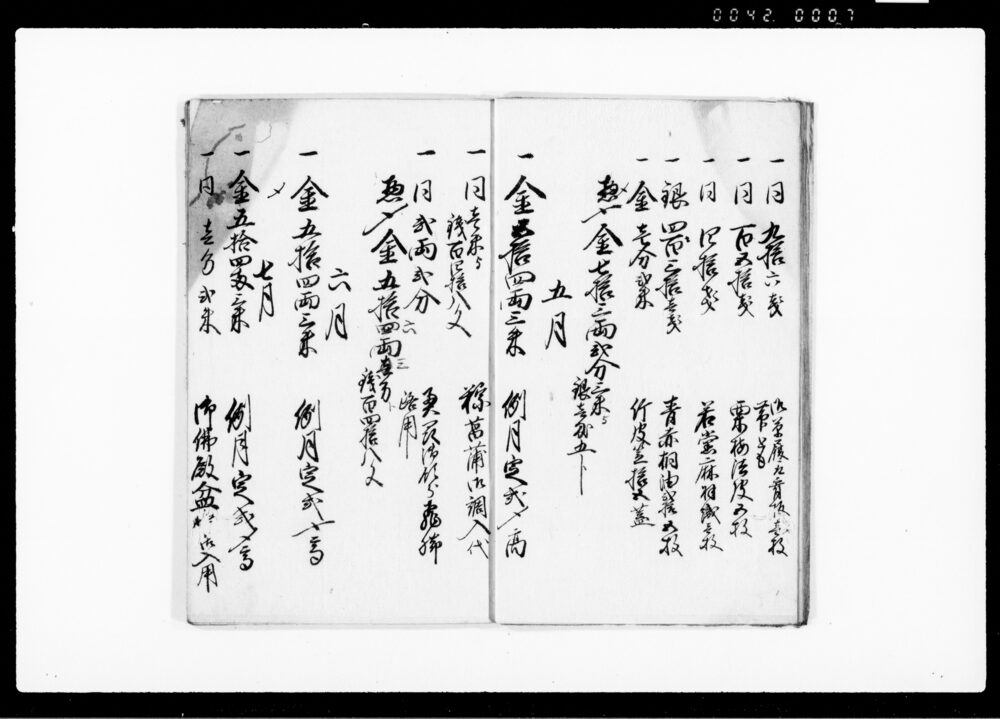 0042 0007
一 同 九拾六匁
一 同 百五拾匁 栗梅法皮五枚
一 同 四拾匁 若党麻羽織壱枚
一 銀 四百三拾壱匁 青赤桐油弐拾五枚
一 金 壱分弐朱 竹皮笠拾五蓋
〆 惣〆金七拾三両弐分三朱ト
銀壱匁五卜
五月
一 金五拾四両三朱 例月定式〆高
一 同 壱朱ト 粽菖蒲御調入代
銭百四拾八文
一 同 弐両弐分
路用
惣〆金五拾四両壱分ト
銭百四拾八文
六月
一 金五拾四両三朱 例月定式〆高
〆
七月
一 金五拾四両三朱 例月定式〆高
一 同 壱分弐朱 御佛殿盆 御入用